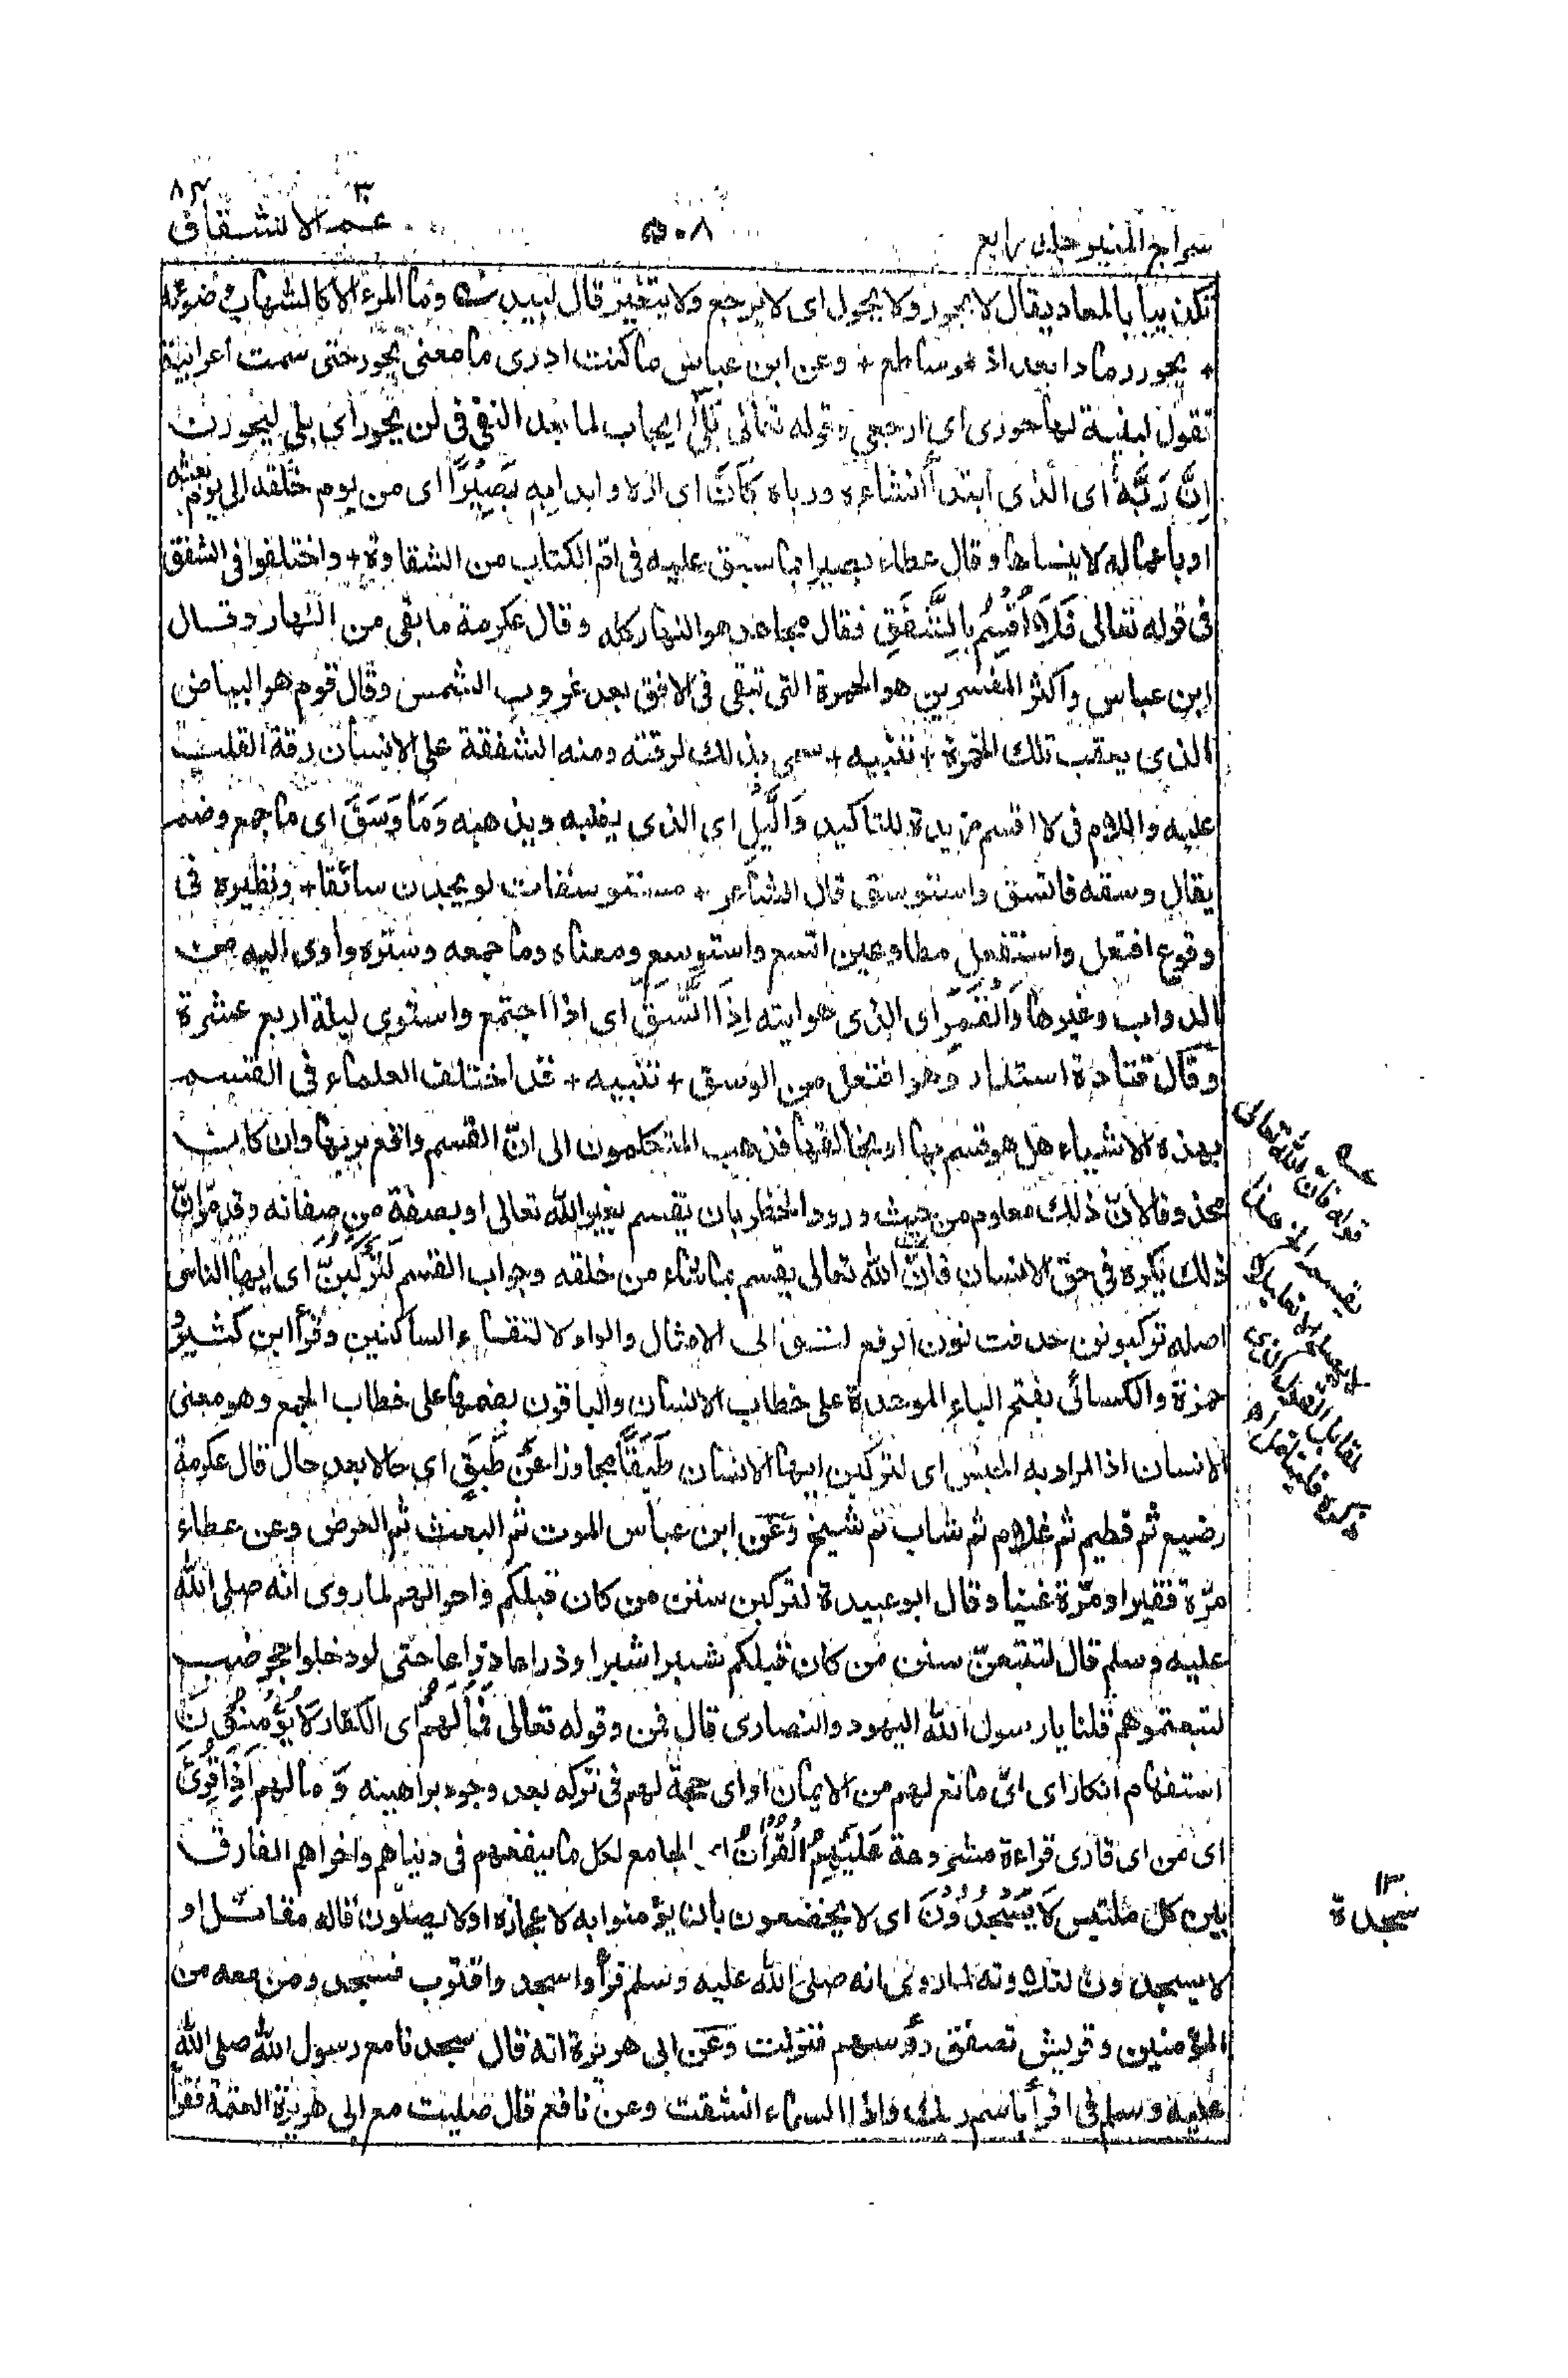 سراج المنير جلد رابع
٥٠٨
عمّ ٣٠ الانشقاق ٨٤
تكذيبا بالمعاد يقال لا يحور ولا يحول اى لا يرجع ولا يتغير قال لبيد ؎ وما المرء الا كالشهاب وضوءه
+ يحور رمادا بعد اذ هو ساطع + وعن ابن عباس ما كنت ادرى ما معنى يحور حتى سمعت اعرابية
تقول لبنية لها حورى اى ارجعى وقوله تعالى بَلٰى ايجاب لما بعد النفى فى لن يحور اى بلى ليحورن
اِنَّ رَبَّهُ اى الذى ابتدأ انشاءه ورباه كَانَ اى ازلا وابدا بِهٖ بَصِيْرًا اى من يوم خلقه الى يوم بعثه
او باعماله لا ينساها وقال عطاء بصيرا بما سبق عليه فى امّ الكتاب من الشقاوة + واختلفوا فى الشفق
فى قوله تعالى فَلَا اُقْسِمُ بِالشَّفَقِ فقال مجاهد هو النهار كله وقال عكرمة ما بقى من النهار وقال
ابن عباس واكثر المفسرين هو الحمرة التى تبقى فى الافق بعد غروب الشمس وقال قوم هو البياض
الذى يعقب تلك الحمرة + تنبيه + سمى بذلك لرقته ومنه الشفقة على الانسان رقة القلب
عليه واللام فى لا اقسم مزيدة للتاكيد وَالَّيْلِ اى الذى يغلبه ويذهبه وَمَا وَسَقَ اى ما جمع وضم
يقال وسقه فاتسق واستوسق قال الشاعر + مستوسقات لو يجدن سائقا + ونظيره فى
وقوع افتعل واستفعل مطاوعين اتسع واستوسع ومعناه وما جمعه وستره واوى اليه من
الدواب وغيرها وَالْقَمَرِ اى الذى هو ايته اِذَا اتَّسَقَ اى اذا اجتمع واستوى ليلة اربع عشرة
وقال قتادة استدار وهو افتعل من الوسق + تنبيه + قد اختلف العلماء فى القسم
بهذه الاشياء هل هو قسم بها او بخالقها فذهب المتكلمون الى انّ القسم واقع بربها وان كان
محذوفا لانّ ذلك معلوم من حيث ورود الحظر بان يقسم بغير الله تعالى او بصفة من صفاته وقد مرّ انّ
ذلك يكره فى حق الانسان فانّ الله تعالى يقسم بما شاء من خلقه وجواب القسم لَتَرْكَبُنَّ اى ايها الناس
اصله تركبونن حذفت نون الرفع لتوالى الامثال والواو لالتقاء الساكنين وقرأ ابن كثير و
حمزة والكسائى بفتح الباء الموحدة على خطاب الانسان والباقون بضمها على خطاب الجمع وهو معنى
الانسان اذ المراد به الجنس اى لتركبن ايها الانسان طَبَقًا مجاوزا عَنْ طَبَقٍ اى حالا بعد حال قال عكرمة
رضيع ثم فطيم ثم غلام ثم شاب ثم شيخ وعن ابن عباس الموت ثم البعث ثم العرض وعن عطاء
مرّة فقيرا ومرّة غنيا وقال ابو عبيدة لتركبن سنن من كان قبلكم واحوالهم لما روى انه صلى الله
عليه وسلم قال لتتبعنّ سنن من كان قبلكم شبرا شبرا وذراعا ذراعا حتى لو دخلوا جحر ضب
لتبعتموهم قلنا يا رسول الله اليهود والنصارى قال فمن وقوله تعالى فَمَا لَهُمْ اى الكفار لَا يُؤْمِنُوْنَ
استفهام انكار اى اىّ مانع لهم من الايمان او اى حجة لهم فى تركه بعد وجود براهينه وَ ما لهم اِذَا قُرِئَ
اى من اى قارى قراءة مشروحة عَلَيْهِمُ الْقُرْاٰنُ اى الجامع لكل ما ينفعهم فى دنياهم واخراهم الفارق
بين كل ملتبس لَا يَسْجُدُوْنَ اى لا يخضعون بان يؤمنوا به لاعجازه او لا يصلون قاله مقاتل او
لا يسجدون لتلاوته لما روى انه صلى الله عليه وسلم قرأ واسجد واقترب فسجد ومن معه من
المؤمنين وقريش تصفق رؤسهم فنزلت وعن ابى هريرة انه قال سجدنا مع رسول الله صلى الله
عليه وسلم فى اقرأ باسم ربك واذا السماء انشقت وعن نافع قال صليت مع ابى هريرة العتمة فقرأ
قوله فان الله تعالى
سجدة ١٣